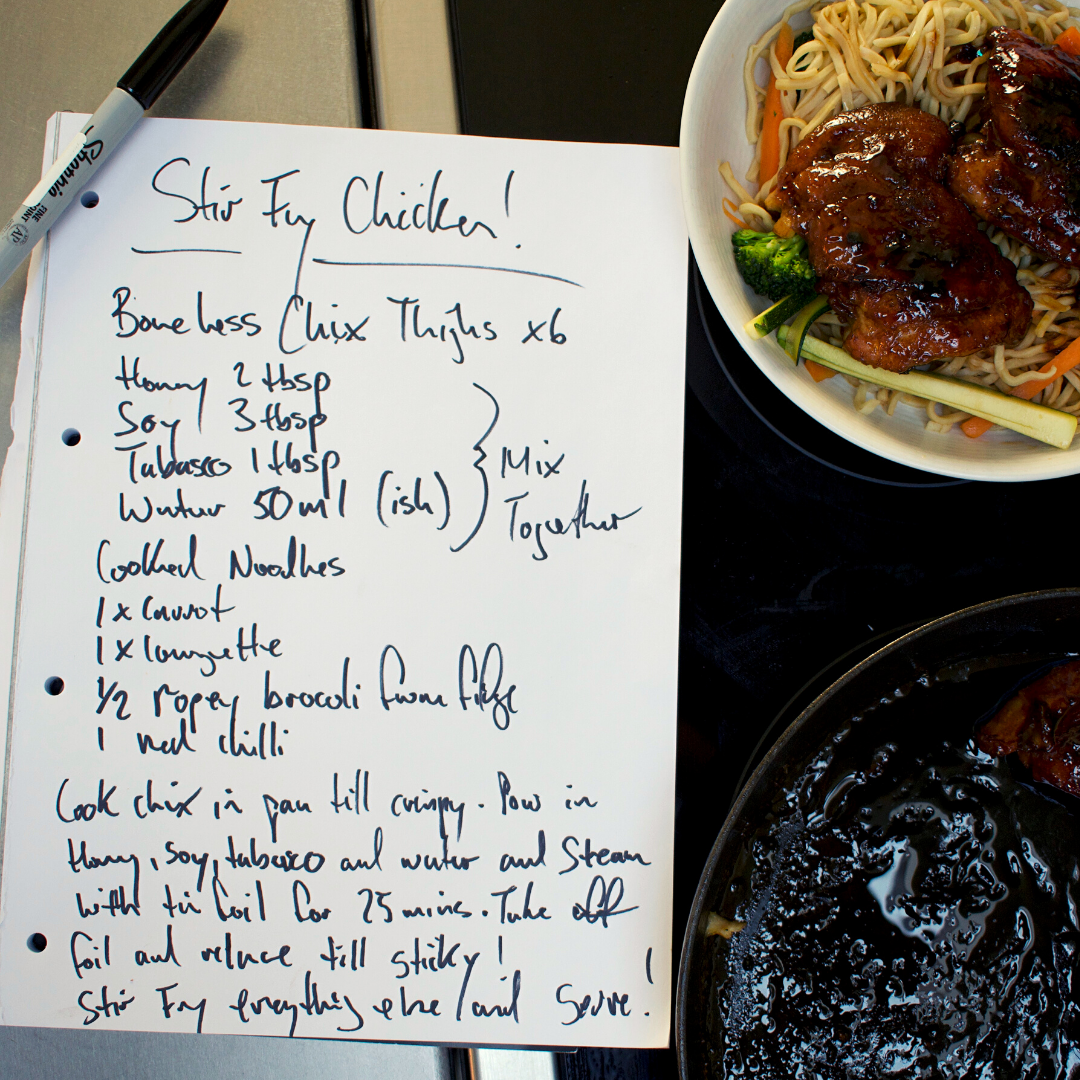 Sharpie
FINE
POINT
AP
Stir Fry Chicken!
Boneless Chix Thighs x6
Honey 2 tbsp
Soy 3 tbsp
Tabasco 1 tbsp
Water 50ml (ish)
Mix
Together
Cooked Noodles
1 x Carrot
1 x Courgette
1/2 ropey brocoli from fridge
1 red chilli
Cook chix in pan till crispy. Pour in
Honey, soy, tabasco and water and Steam
with tin foil for 25 mins. Take off
foil and reduce till sticky!
Stir Fry everything else and Serve!